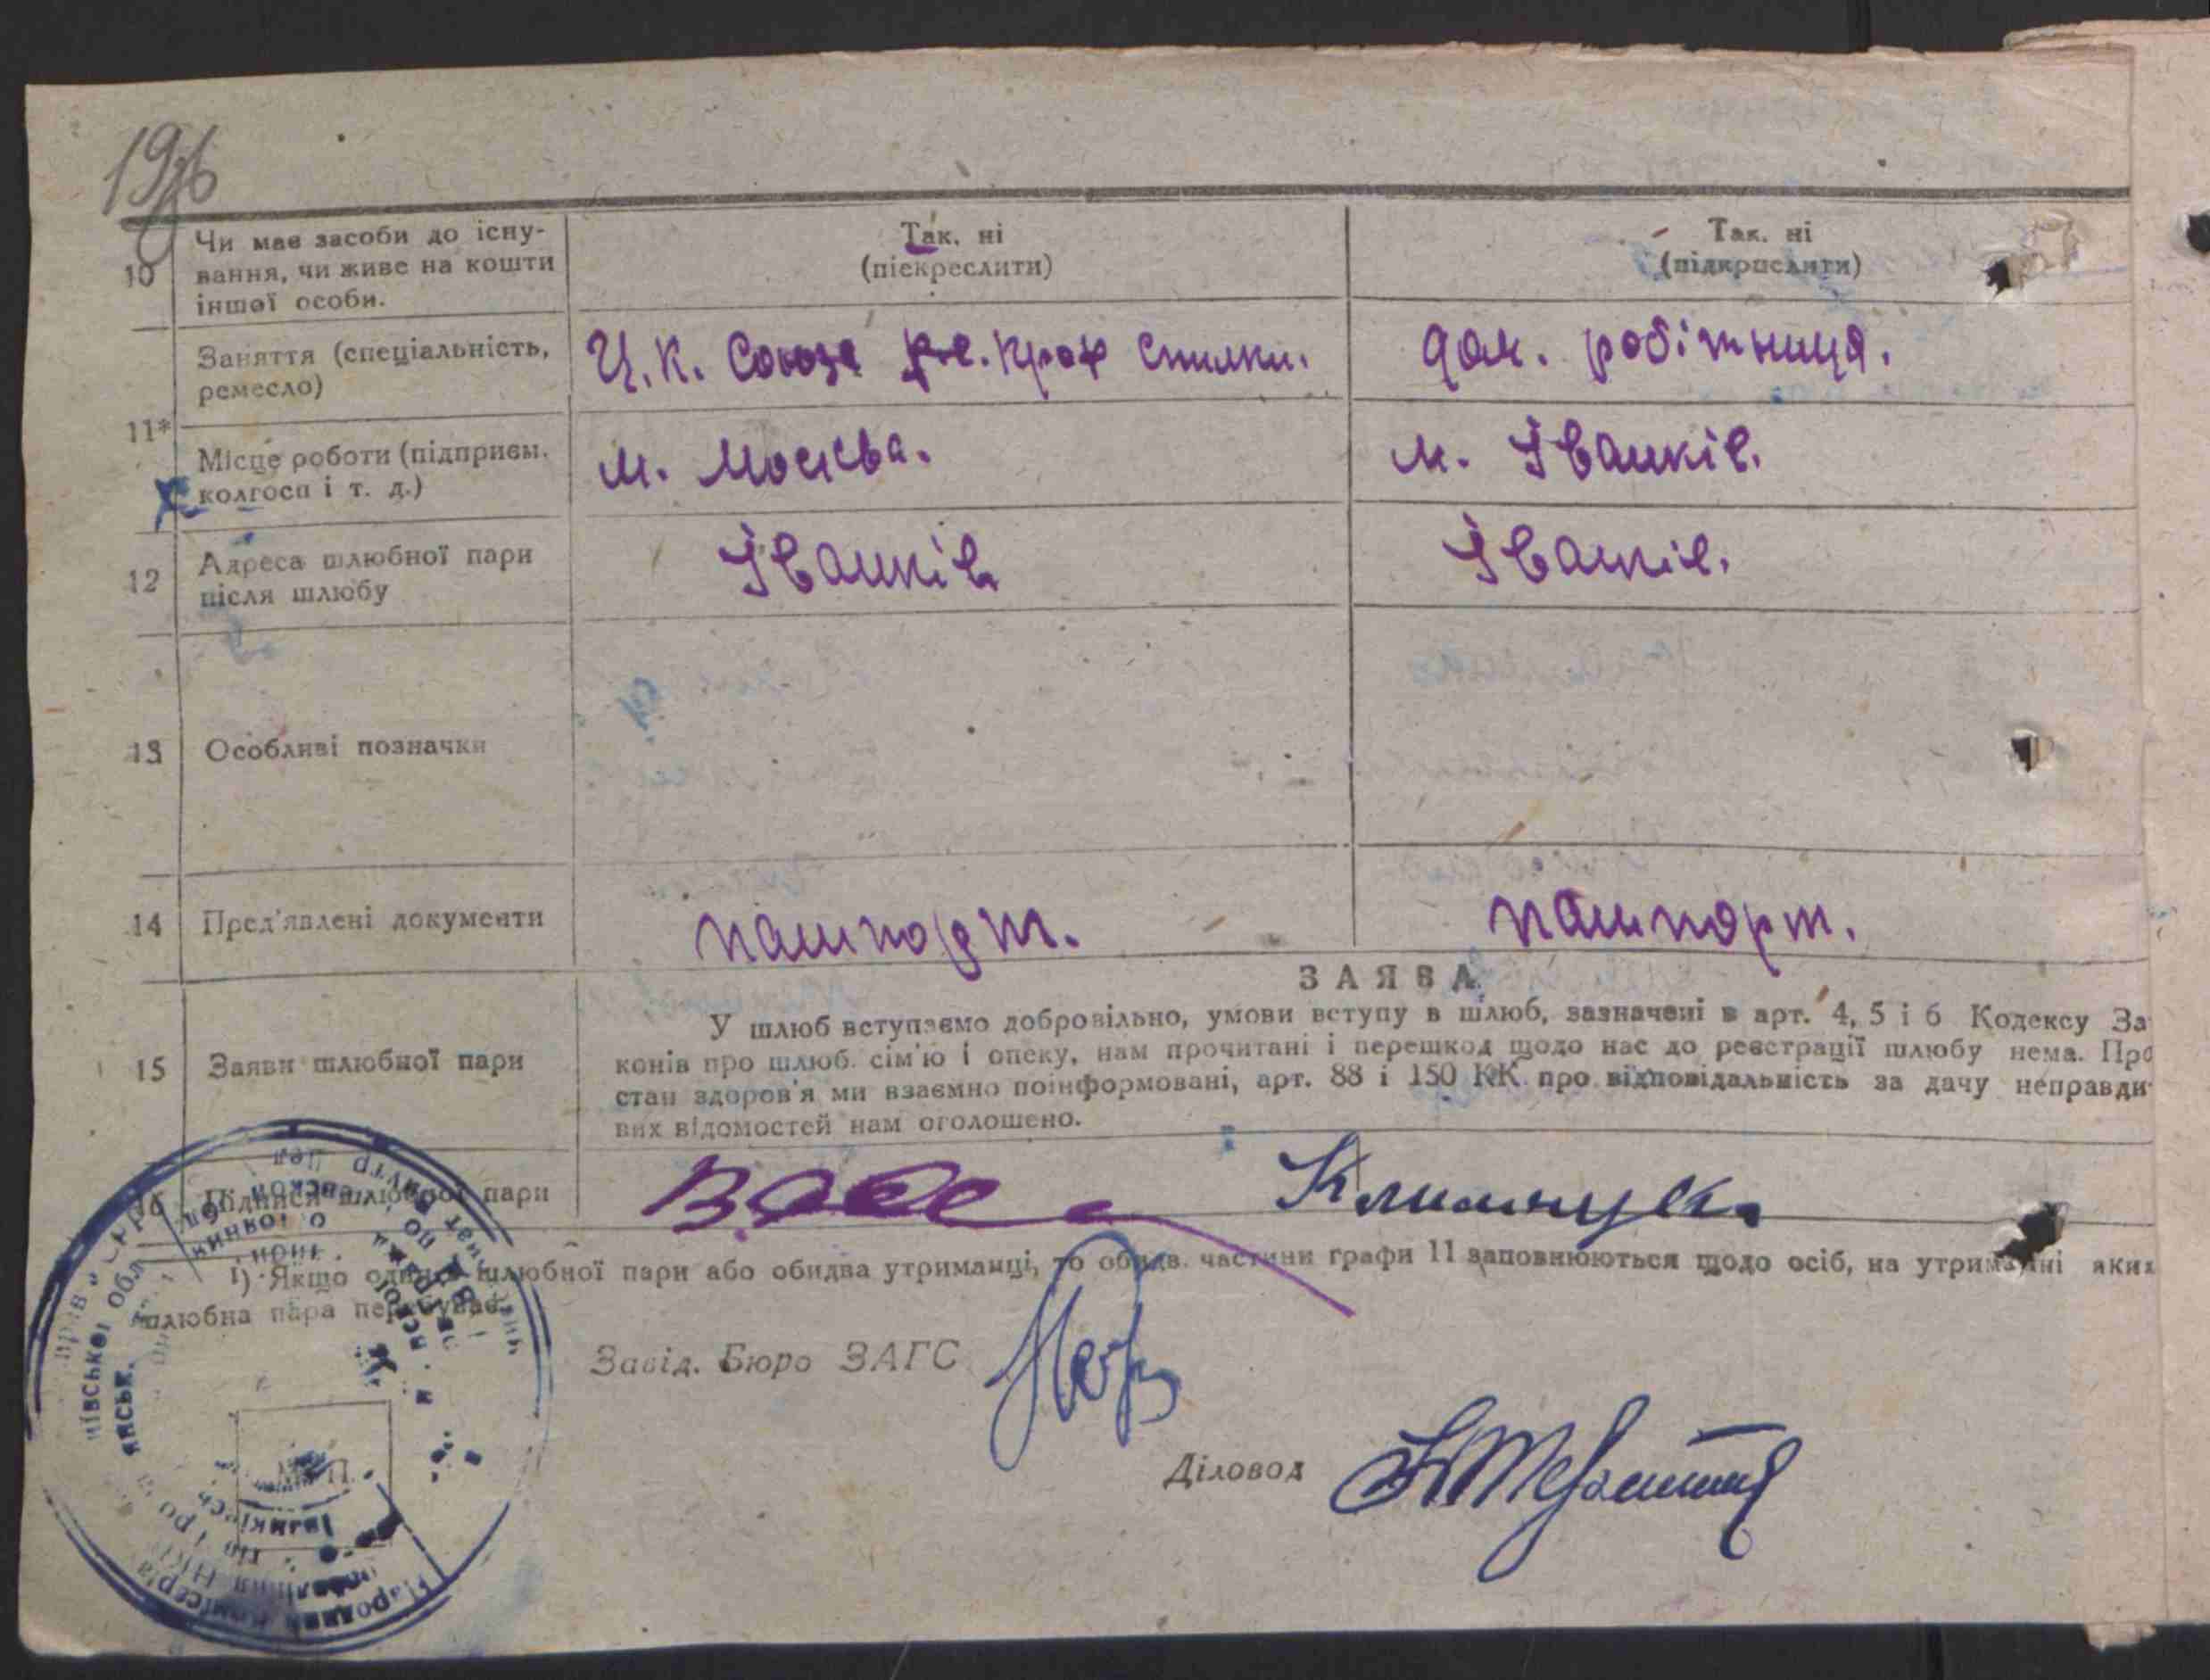 10
Чи має засоби до існу-
вання, чи живе на кошти
іншої особи.
Так. ні
(піекреслити)
Так. ні
(підкрислити)
11*
Заняття (спеціальність,
ремесло)
Ц.К. Союза проф спилки.
дом. робітниця.
Місце роботи (підприєм.
колгосп і т. д.)
м. Москва.
м. Іванків.
12
Адреса шлюбної пари
після шлюбу
Іванків
Іванків.
13
Особливі позначки
14
Пред'явлені документи
пашпорт.
пашпорт.
15
Заяви шлюбної пари
ЗАЯВА
У шлюб вступаємо добровільно, умови вступу в шлюб, зазначені в арт. 4, 5 і 6 Кодексу За
конів про шлюб. сім'ю і опеку, нам прочитані і перешкод щодо нас до реєстрації шлюбу нема. Про
стан здоров'я ми взаємно поінформовані, арт. 88 і 150 КК про відповідальність за дачу неправди-
вих відомостей нам оголошено.
16
Підписи шлюбної пари
Климчук.
¹) Якщо один із шлюбної пари або обидва утриманці, то обидв. частини графи 11 заповнюються щодо осіб, на утриманні яких
шлюбна пара перебуває.
Завід. Бюро ЗАГС
Діловод
М. П.